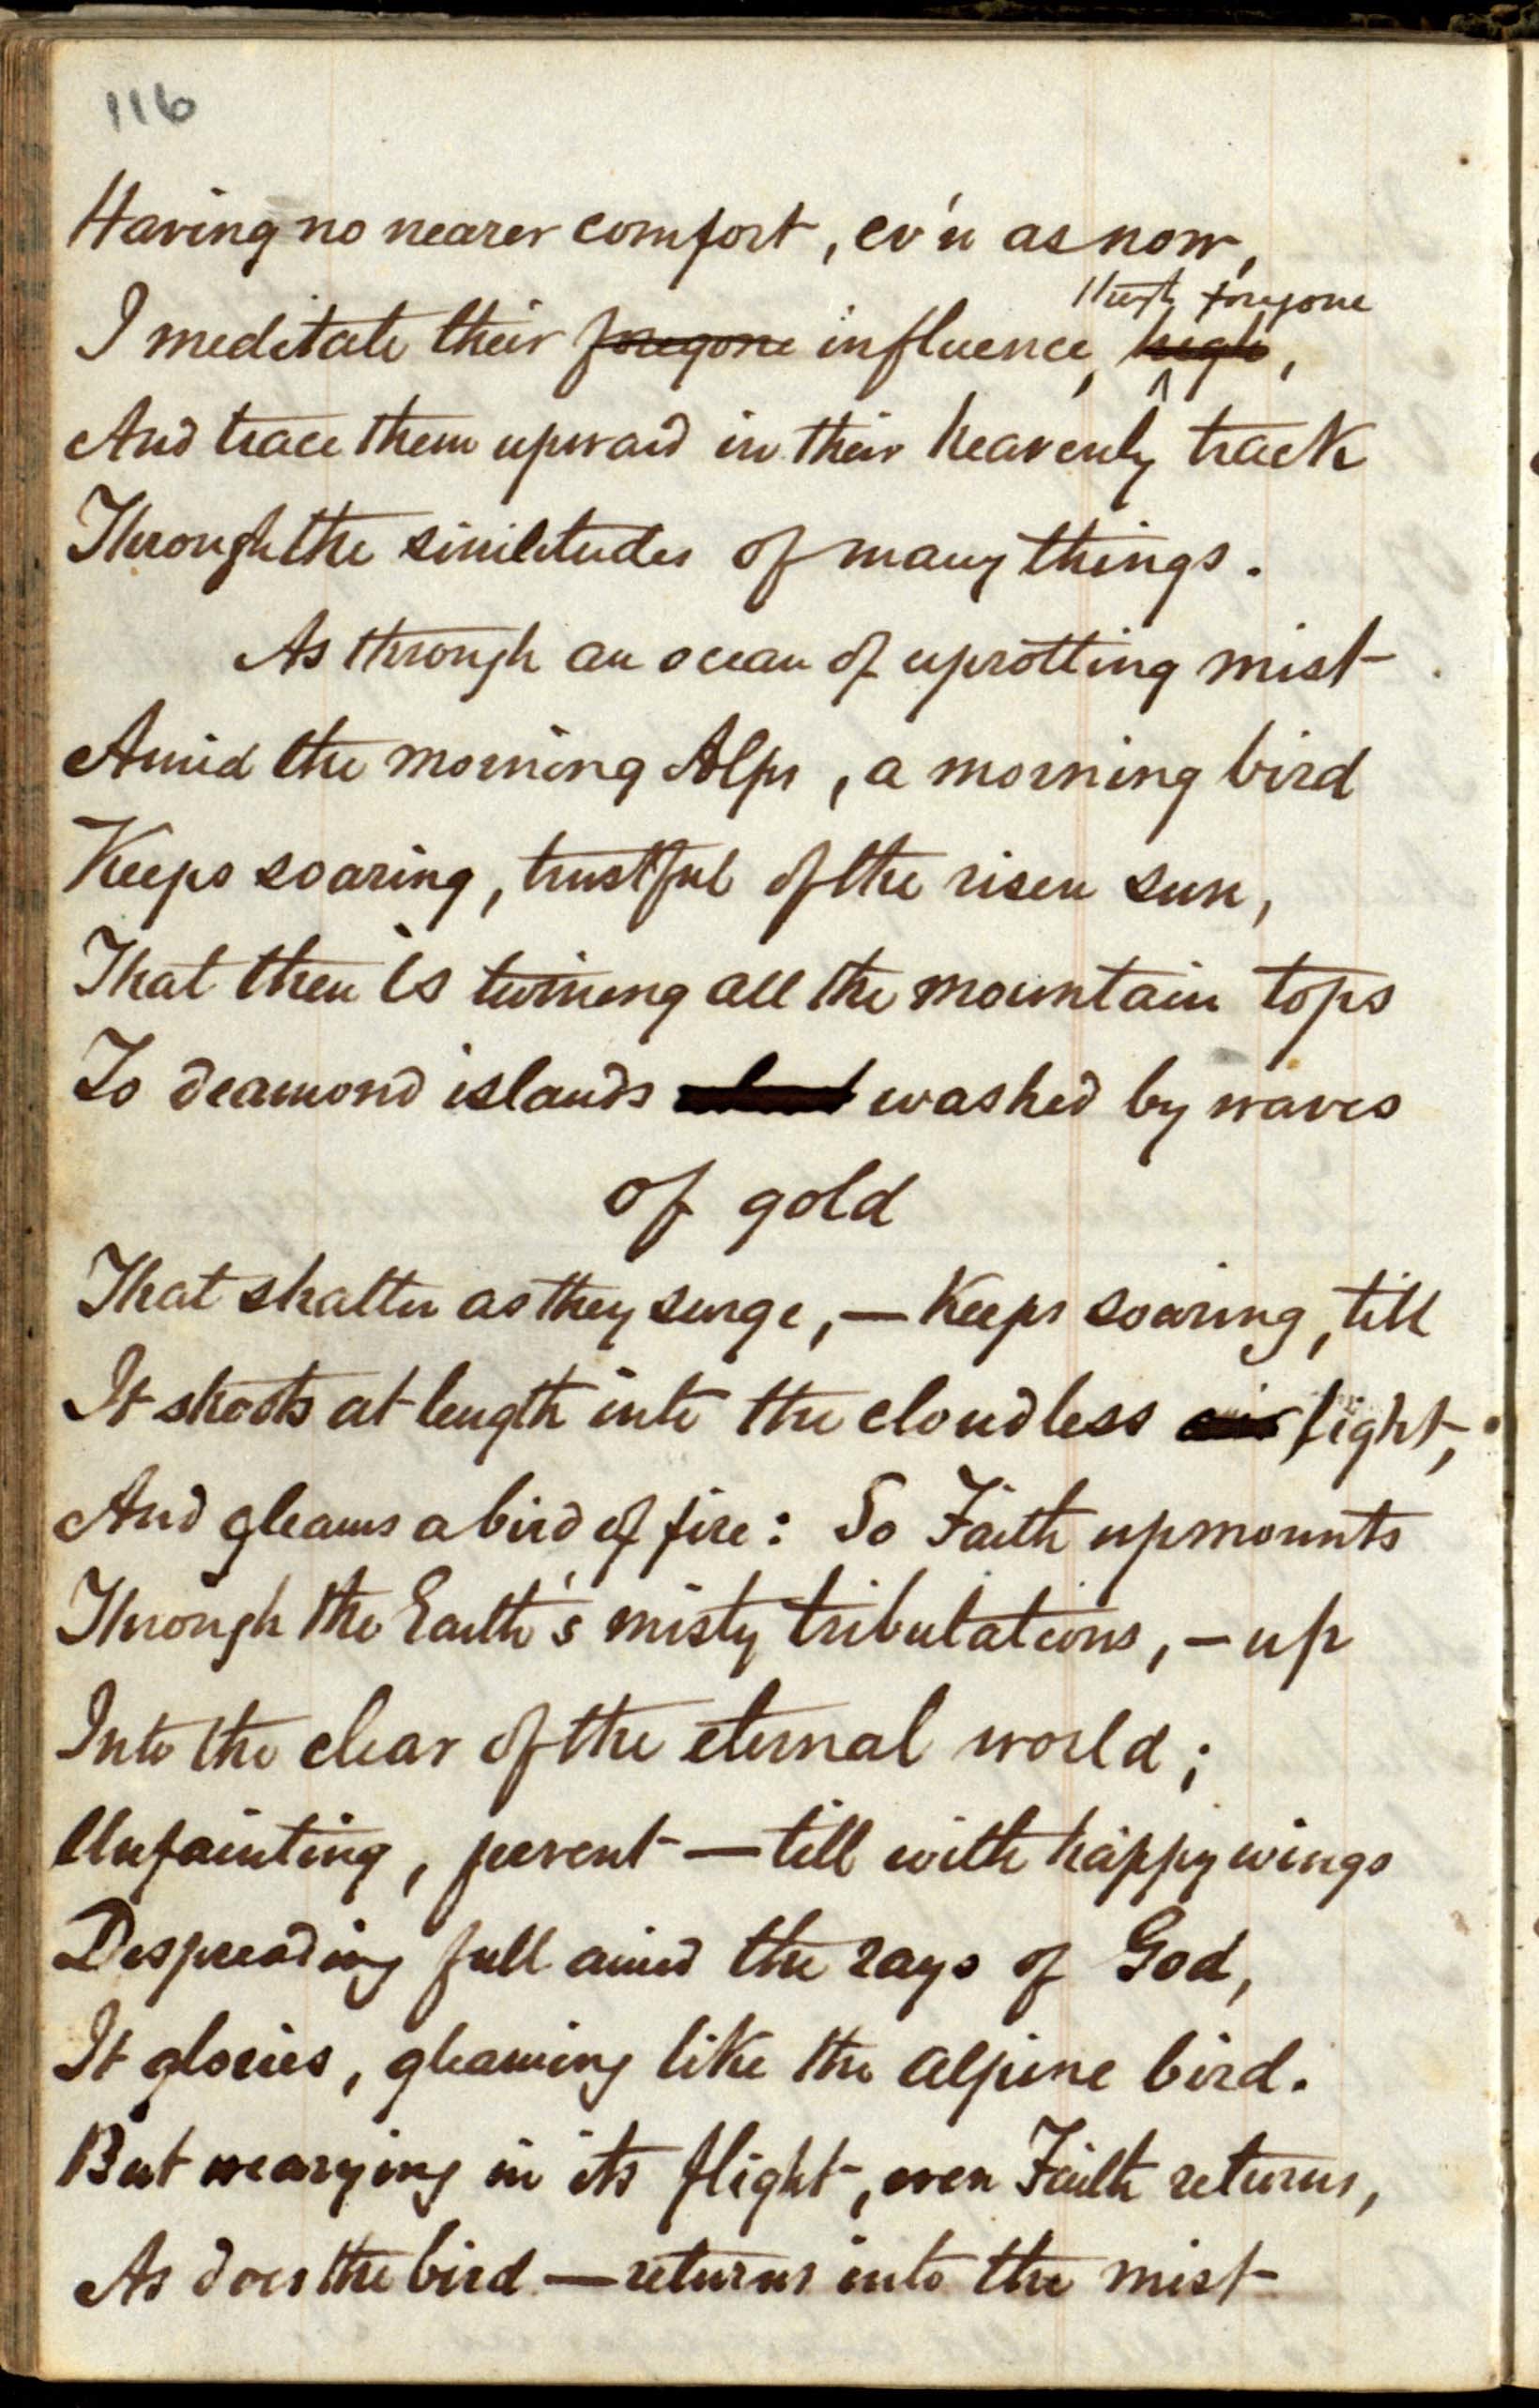 116
Having no nearer comfort, ev'n as now,
foregone
I meditate their foregone influence, high,
And trace them upward in their heavenly track
Through the similitudes of many things.
As through an ocean of uprotting mist
Amid the morning Alps, a morning bird
Keeps soaring, trustful of the risen sun,
That then is turning all the mountain tops
To deamond islands washed by waves
of gold
That shatter as they surge, — Keeps soaring, till
It shoots at length into the cloudless air light,
And gleams a bird of fire: So Faith upmounts
Through the Earth's misty tribulations, — up
Into the clear of the eternal world;
Unfainting, fervent — till with happy wings
Despreading full amid the rays of God,
It glories, gleaming like the alpine bird.
But wearying in its flight, even Faith returns,
As does the bird — returns into the mist